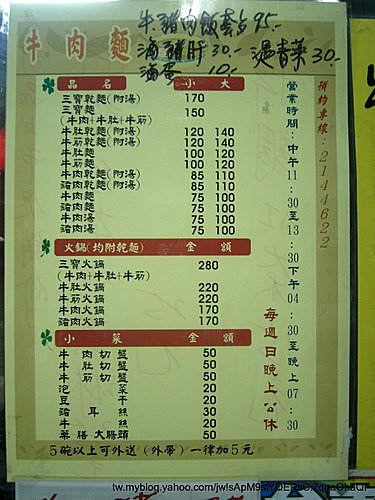 牛肉麵
牛豬肉飯套餐 95.-
滷豬肝 30.- 燙青菜 30.-
滷蛋 10.-
品名 小 大
三寶乾麵(附湯) 170
三寶麵 150
(牛肉+牛肚+牛筋)
牛肚乾麵(附湯) 120 140
牛筋乾麵(附湯) 120 140
牛肚麵 100 120
牛筋麵 100 120
牛肉乾麵(附湯) 85 110
豬肉乾麵(附湯) 85 110
牛肉麵 75 100
豬肉麵 75 100
牛肉湯 75 100
豬肉湯 75 100
火鍋(均附乾麵) 金額
三寶火鍋 280
(牛肉+牛肚+牛筋)
牛肚火鍋 220
牛筋火鍋 220
牛肉火鍋 170
豬肉火鍋 170
小菜 金額
牛肉切盤 50
牛肚切盤 50
牛筋切盤 50
泡菜 20
豆干 20
豬耳絲 30
牛絲 20
藥膳大腸頭 50
5碗以上可外送(外帶)一律加5元
預約專線:2144622
營業時間:中午11:30至13:30下午04:30至晚上07:30
每週日晚上公休
tw.myblog.yahoo.com/